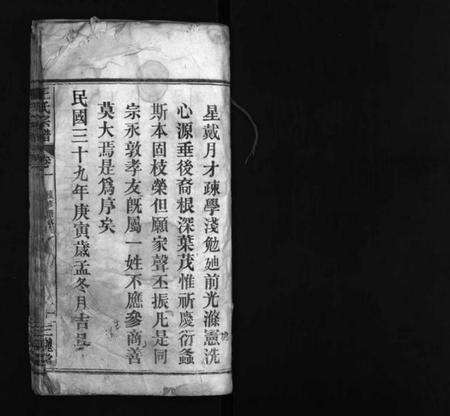 星戴月才疎學淺勉迪前光滌慮洗
心源垂後裔根深葉茂惟祈慶衍螽
斯本固枝榮但願家聲丕振凡是同
宗永敦孝友旣屬一姓不應參商善
莫大焉是爲序矣
民國三十九年庚寅歲孟冬月吉
王氏宗譜
卷一
三槐